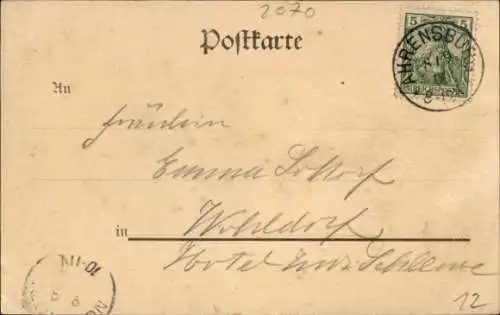 2070
Postkarte
5
AHRENSBU
8-9
An
Fräulein
Emma
in Wohldorf
Hotel zur Schleuse
10-11V
12